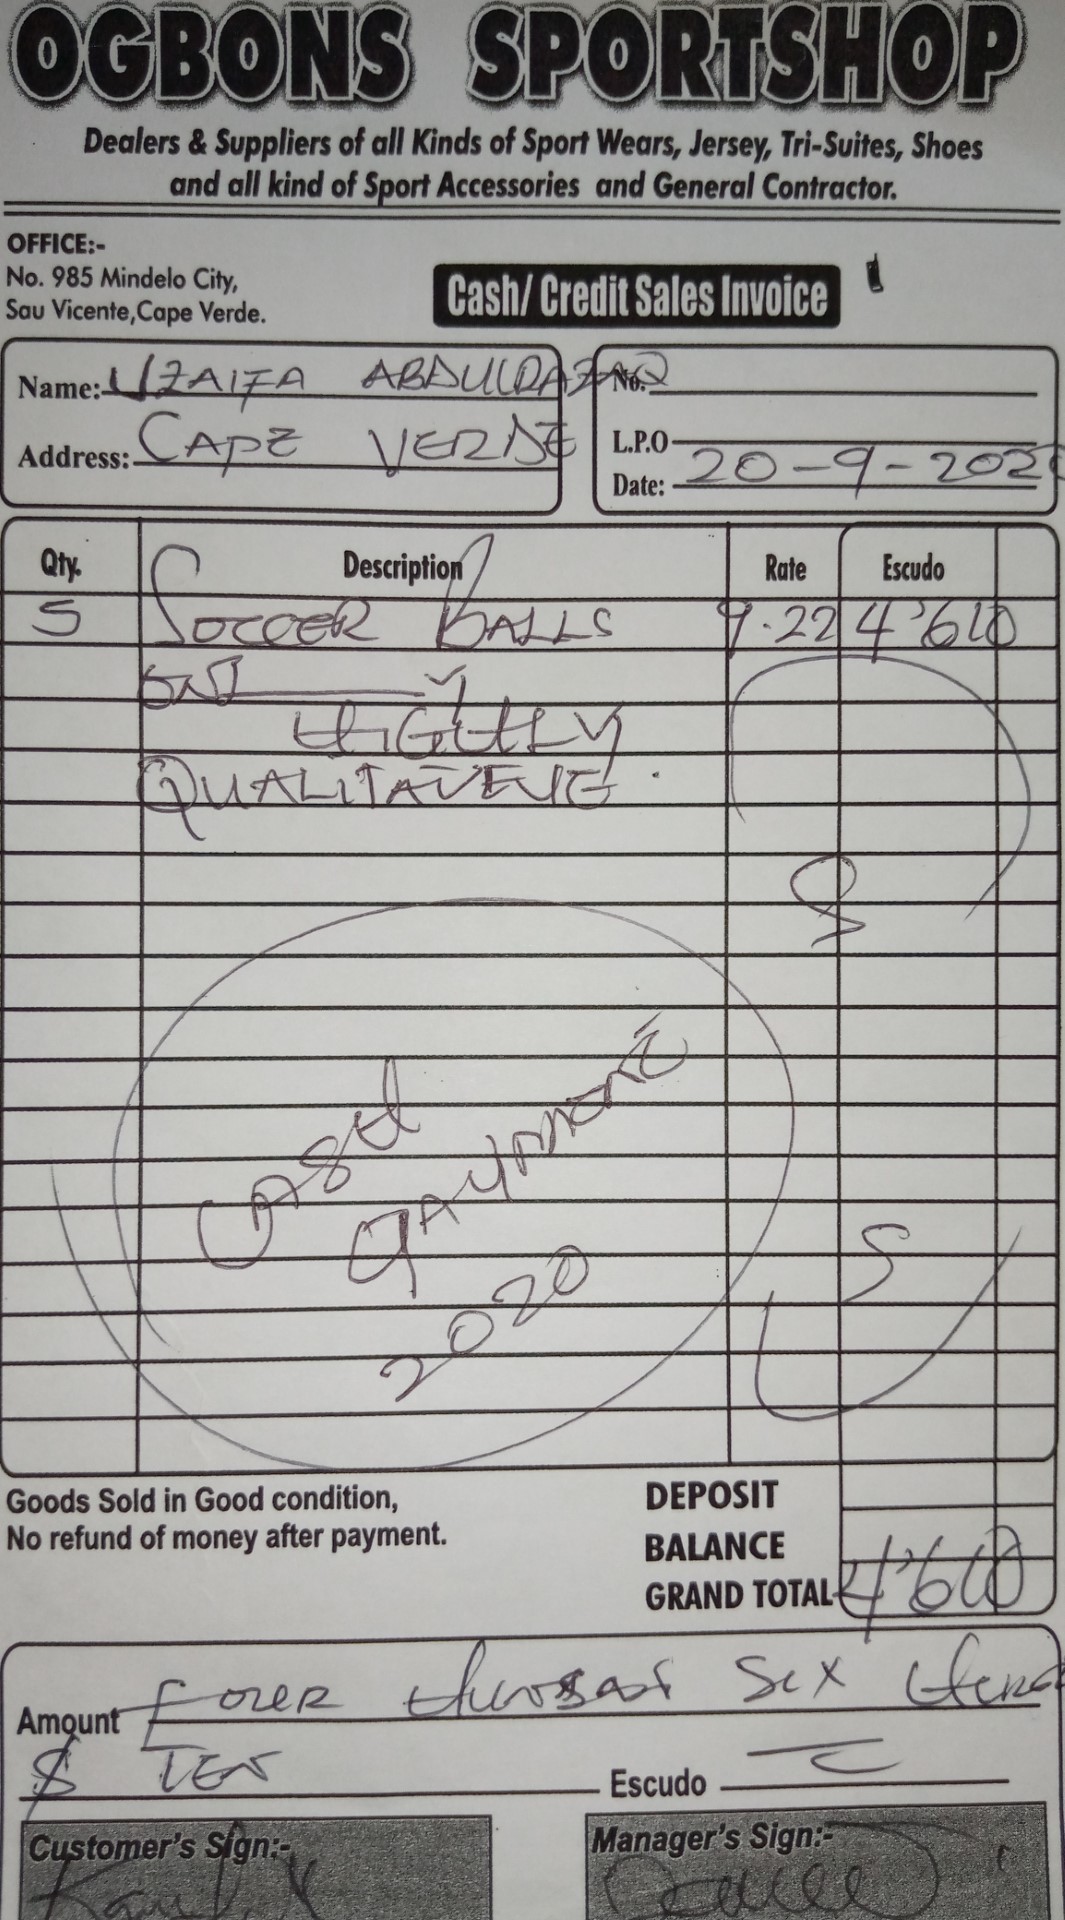 OGBONS SPORTSHOP
Dealers & Suppliers of all Kinds of Sport Wears, Jersey, Tri-Suites, Shoes
and all kind of Sport Accessories and General Contractor.
OFFICE:-
No. 985 Mindelo City,
Sau Vicente,Cape Verde.
Cash/ Credit Sales Invoice
Name: UZAIFA ABDULRAZAQ
No.
Address: CAPE VERDE
L.P.O
Date: 20-9-2020
Qty. Description Rate Escudo
5 SOCCER BALLS 9.22 4'610
HIGHLY
Cash
Payment
2020
Goods Sold in Good condition,
No refund of money after payment.
DEPOSIT
BALANCE
GRAND TOTAL 4'610
Amount Four Six
$ TEN Escudo
Customer's Sign:-
Manager's Sign:-